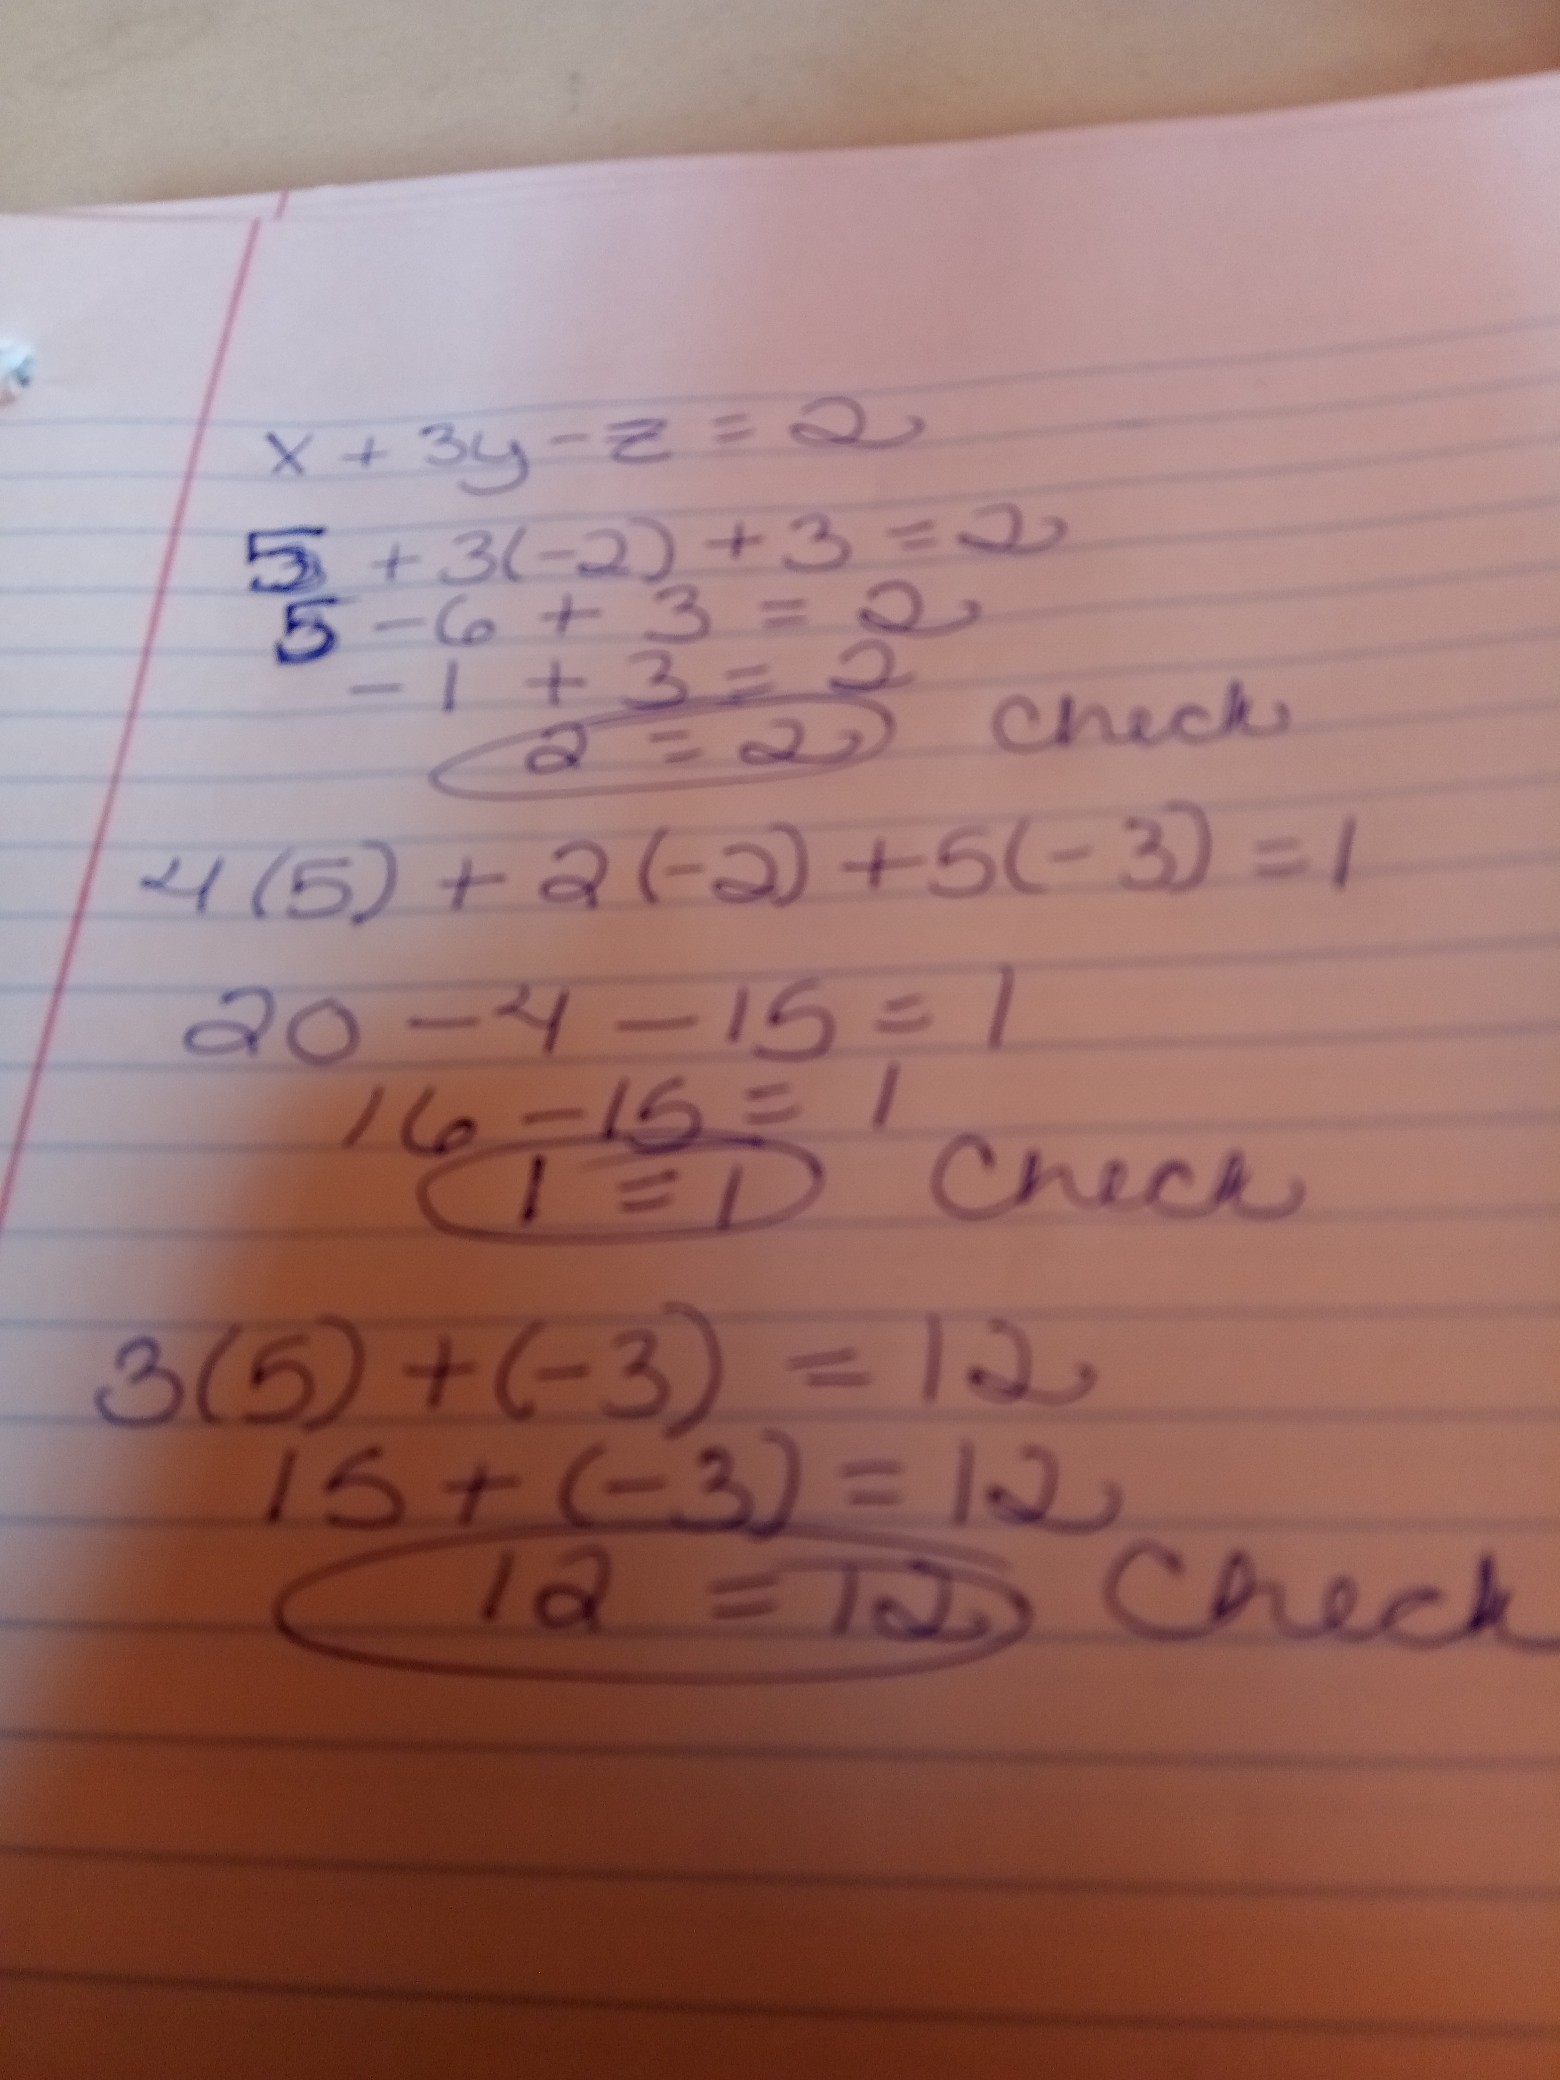 x + 3y - z = 2
5 + 3(-2) + 3 = 2
5 - 6 + 3 = 2
- 1 + 3 = 2
2 = 2 Check
4(5) + 2(-2) + 5(-3) = 1
20 - 4 - 15 = 1
16 - 15 = 1
1 = 1 Check
3(5) + (-3) = 12
15 + (-3) = 12
12 = 12 Check